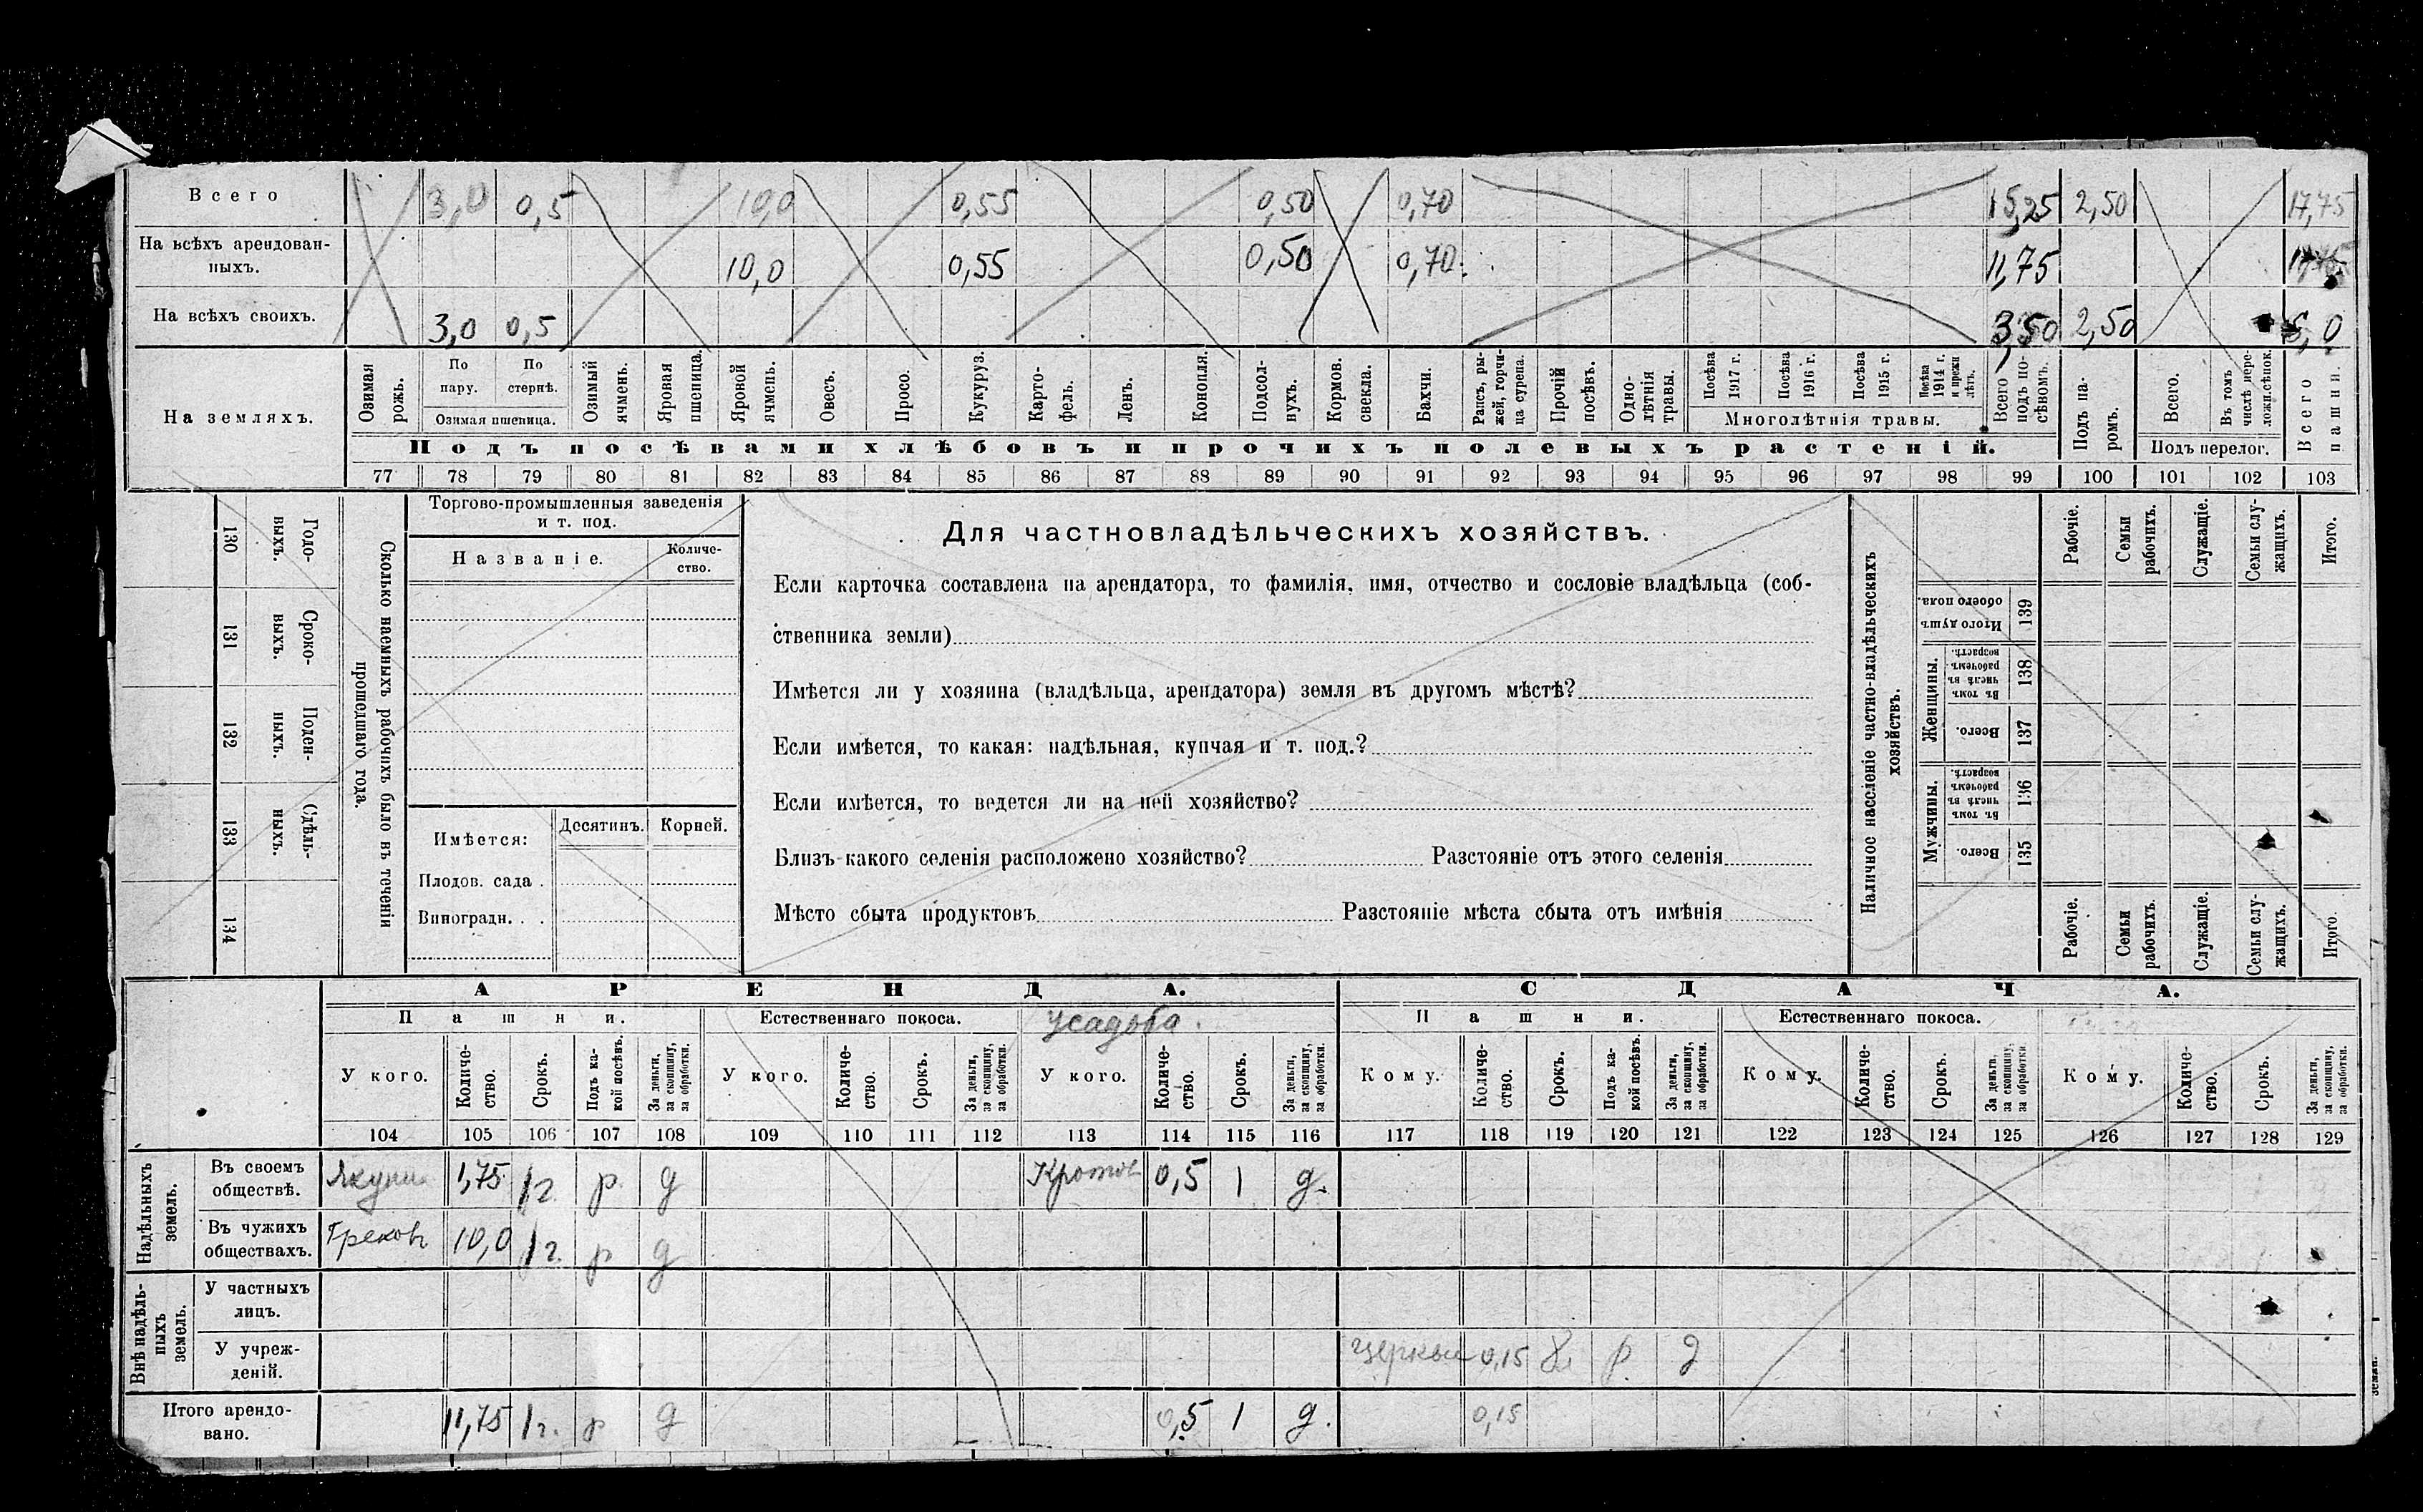 Всего 3,0 0,5 10,0 0,55 0,50 0,70 15,25 2,50 17,75
На всѣхъ арендован-
ныхъ. 10,0 0,55 0,50 0,70 11,75
На всѣхъ своихъ. 3,0 0,5 3,50 2,50
На земляхъ.
Озимая рожь.
По пару.
По стернѣ.
Озимая пшеница.
Озимый ячмень.
Яровая пшеница.
Яровой ячмень.
Овесъ.
Просо.
Кукуруз.
Карто-
фель.
Ленъ.
Конопля.
Подсол-
нухъ.
Кормов. свекла.
Бахчи.
Рапсъ, ры-
жей, горчи-
ца сурепа.
Прочій посѣвъ.
Одно-
лѣтнія травы.
Посѣва 1917 г.
Посѣва 1916 г.
Посѣва 1915 г.
Посѣва 1914 г. и прежн лѣтъ.
Многолѣтнія травы.
Всего подъ по-
сѣвомъ.
Подъ па-
ромъ.
Всего.
Въ томъ числѣ пере-
лож. сѣнокос.
Подъ перелог.
Всего пашни.
Подъ посѣвами хлѣбовъ и прочихъ полевыхъ растеній.
77 78 79 80 81 82 83 84 85 86 87 88 89 90 91 92 93 94 95 96 97 98 99 100 101 102 103
130 Годо-
выхъ.
131 Сроко-
выхъ.
132 Поден-
ныхъ.
133 Сдѣль-
ныхъ.
134
Сколько наемныхъ рабочихъ было въ теченіи
прошедшаго года.
Торгово-промышленныя заведенія
и т. под.
Названіе.
Количе-
ство.
Имѣется: Десятинъ. Корней.
Плодов. сада .
Виноградн. . .
Для частновладѣльческихъ хозяйствъ.
Если карточка составлена на арендатора, то фамилія, имя, отчество и сословіе владѣльца (соб-
ственника земли)
Имѣется ли у хозяина (владѣльца, арендатора) земля въ другомъ мѣстѣ?
Если имѣется, то какая: надѣльная, купчая и т. под.?
Если имѣется, то ведется ли на ней хозяйство?
Близъ какого селенія расположено хозяйство? Разстояніе отъ этого селенія
Мѣсто сбыта продуктовъ Разстояніе мѣста сбыта отъ имѣнія
Наличное населеніе частно-владѣльческихъ
хозяйствъ.
Рабочіе.
Семьи рабочихъ.
Служащіе.
Семьи слу-
жащихъ.
Итого.
Итого душъ обоего пола. 139
Женщины.
Въ томъ числѣ въ рабочемъ возрастѣ. 138
Всего. 137
Мужчины.
Въ томъ числѣ въ рабочемъ возрастѣ. 136
Всего. 135
Рабочіе.
Семьи рабочихъ.
Служащіе.
Семьи слу-
жащихъ.
Итого.
АРЕНДА. СДАЧА.
Пашни. Естественнаго покоса. Усадьба. Пашни. Естественнаго покоса.
У кого.
Количе-
ство.
Срокъ.
Подъ ка-
кой посѣвъ.
За деньги, за скопщину, за обработки.
У кого.
Количе-
ство.
Срокъ.
За деньги, за скопщину, за обработки.
У кого.
Количе-
ство.
Срокъ.
За деньги, за скопщину, за обработки.
Кому.
Количе-
ство.
Срокъ.
Подъ ка-
кой посѣвъ.
За деньги, за скопщину, за обработки.
Кому.
Количе-
ство.
Срокъ.
За деньги, за скопщину, за обработки
Кому.
Количе-
ство.
Срокъ.
За деньги, за скопщину, за обработки.
104 105 106 107 108 109 110 111 112 113 114 115 116 117 118 119 120 121 122 123 124 125 126 127 128 129
Надѣльныхъ земель.
Въ своемъ
обществѣ. 1,75 1 г. р д 0,5 1 д.
Въ чужихъ
обществахъ. Грековъ 10,0 1 г. р д
Внѣ надѣль-
ныхъ земель.
У частныхъ
лицъ.
У учреж-
деній. 0,15 р. д
Итого арендо-
вано. 11,75 1 г. р д 0,5 1 д. 0,15
земли.